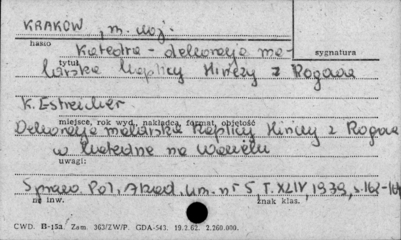 KRAKÓW, m. woj.
hasło
Katedra - dekoracja ma-
sygnatura
tytuł
larska Kaplicy Hińczy z Rogowa
K. Estreicher
miejsce, rok wyd., nakładca, format, objętość
Dekoracja malarska Kaplicy Hińczy z Rogowa
w katedrze na Wawelu
uwagi:
Spraw. Pol. Akad. Um. nr 5, T. XLIV, 1939, s.
nr inw.
znak klas.
CWD. B-15a/ Zam. 363/ZW/P. GDA-543. 19.2.62. 2.260.000.